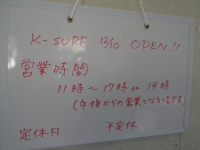 K-SURF 12/10 OPEN!!
営業時間
11時〜17時or19時
(午後からの営業となる
定休日 不定休